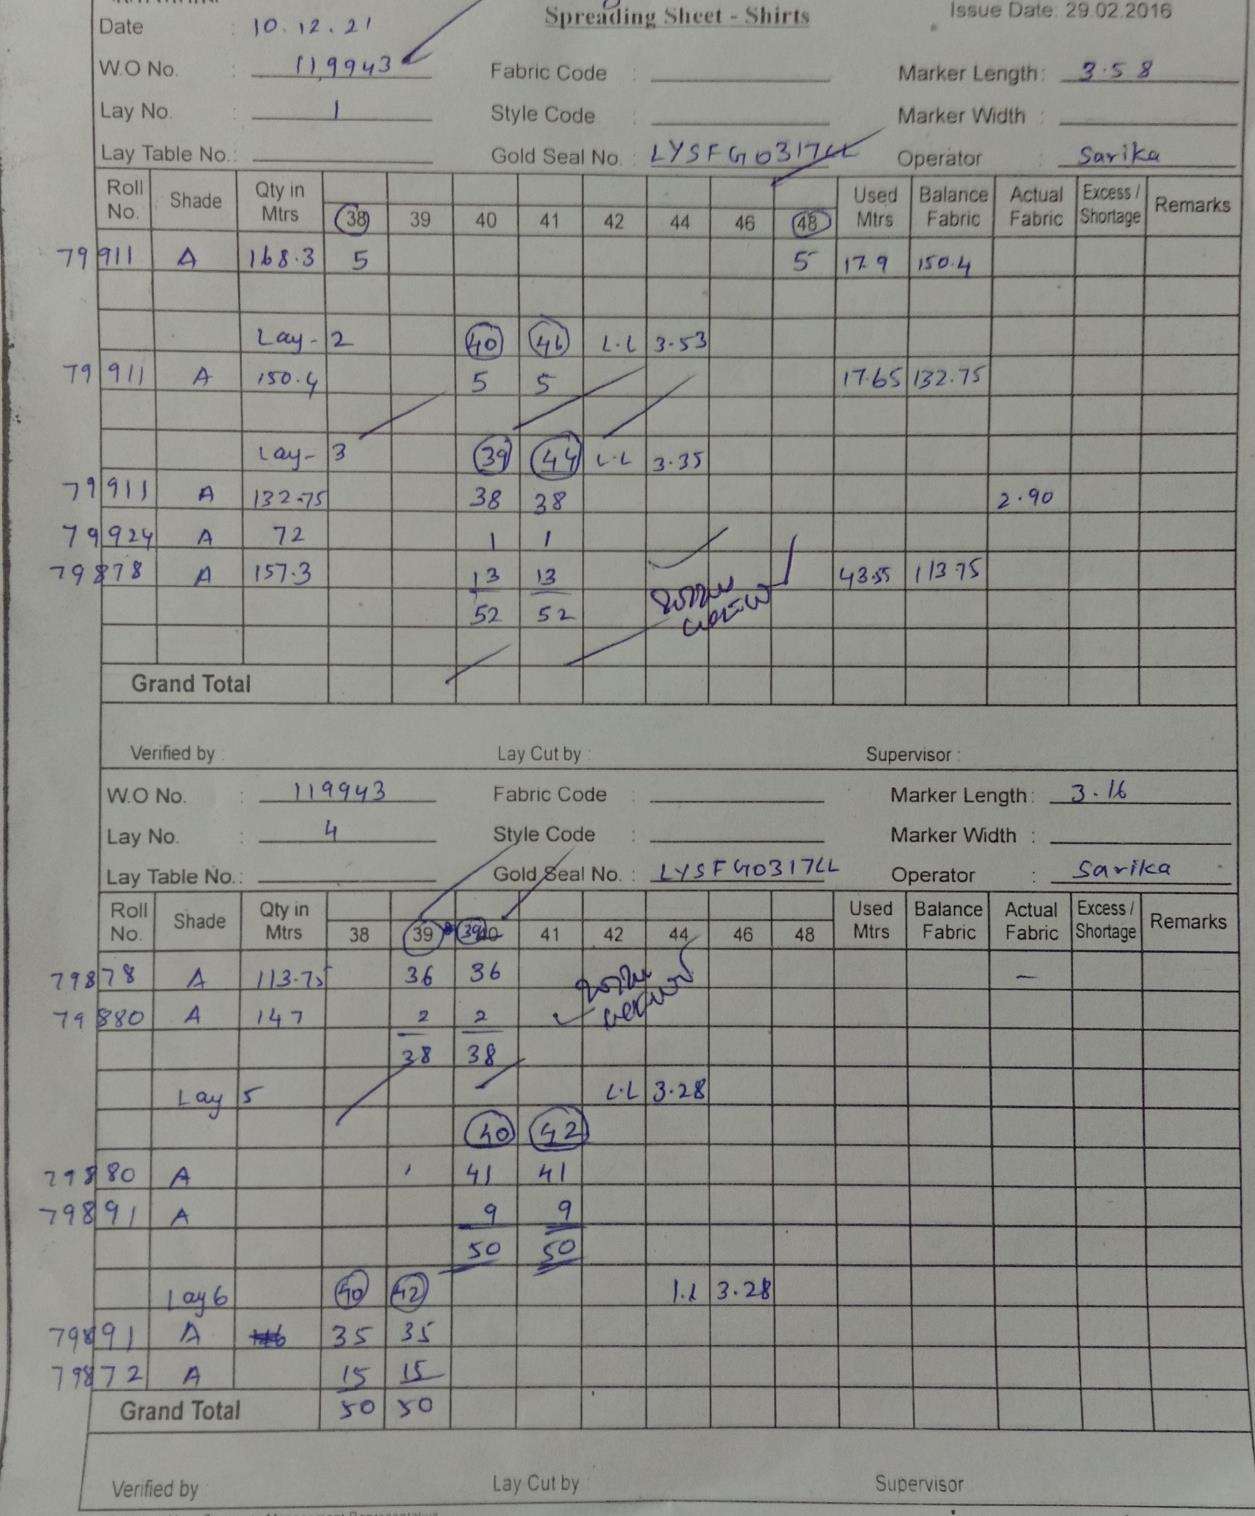 Spreading Sheet - Shirts
Issue Date: 29.02.2016
Date : 10.12.21
W.O No. : 119943 Fabric Code : Marker Length: 3.58
Lay No. : 1 Style Code : Marker Width :
Lay Table No.: Gold Seal No. : LYSFG0317LL Operator : Sarika
Roll No. Shade Qty in Mtrs 38 39 40 41 42 44 46 48 Used Mtrs Balance Fabric Actual Fabric Excess / Shortage Remarks
79911 A 168.3 5 5 17.9 150.4
Lay-2 40 46 L.L 3.53
79911 A 150.4 5 5 17.65 132.75
Lay-3 39 44 L.L 3.35
79911 A 132.75 38 38 2.90
79924 A 72 1 1
79878 A 157.3 13 13 43.55 113.75
52 52
Grand Total
Verified by : Lay Cut by : Supervisor :
W.O No. : 119943 Fabric Code : Marker Length: 3.16
Lay No. : 4 Style Code : Marker Width :
Lay Table No.: Gold Seal No. : LYSFG0317LL Operator : Sarika
Roll No. Shade Qty in Mtrs 38 39 39 40 41 42 44 46 48 Used Mtrs Balance Fabric Actual Fabric Excess / Shortage Remarks
79878 A 113.75 36 36 —
79880 A 147 2 2
38 38
Lay 5 L.L 3.28
40 42
79880 A 41 41
79891 A 9 9
50 50
Lay 6 40 42 L.L 3.28
79891 A 35 35
79872 A 15 15
Grand Total 50 50
Verified by : Lay Cut by : Supervisor